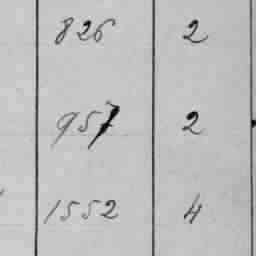 826 2
957 2
1552 4